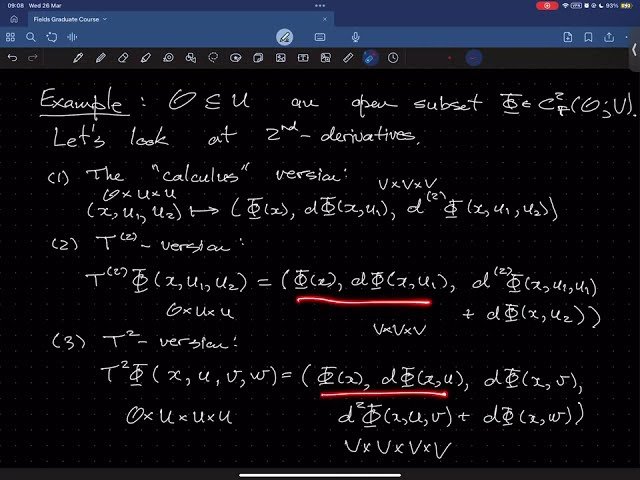 09:08 Wed 26 Mar
93%
Fields Graduate Course
Example : O ⊆ U an open subset Φ ∈ C²_F(O; V).
Let's look at 2nd-derivatives.
(1) The "calculus" version:
O×U×U V×V×V
(x, u₁, u₂) ↦ (Φ(x), dΦ(x,u₁), d⁽²⁾Φ(x,u₁,u₂))
(2) T⁽²⁾-version:
T⁽²⁾Φ(x,u₁,u₂) = (Φ(x), dΦ(x,u₁), d⁽²⁾Φ(x,u₁,u₁)
O×U×U + dΦ(x,u₂))
V×V×V
(3) T²-version:
T²Φ(x,u,v,w) = (Φ(x), dΦ(x,u), dΦ(x,v),
O×U×U×U d²Φ(x,u,v) + dΦ(x,w))
V×V×V×V